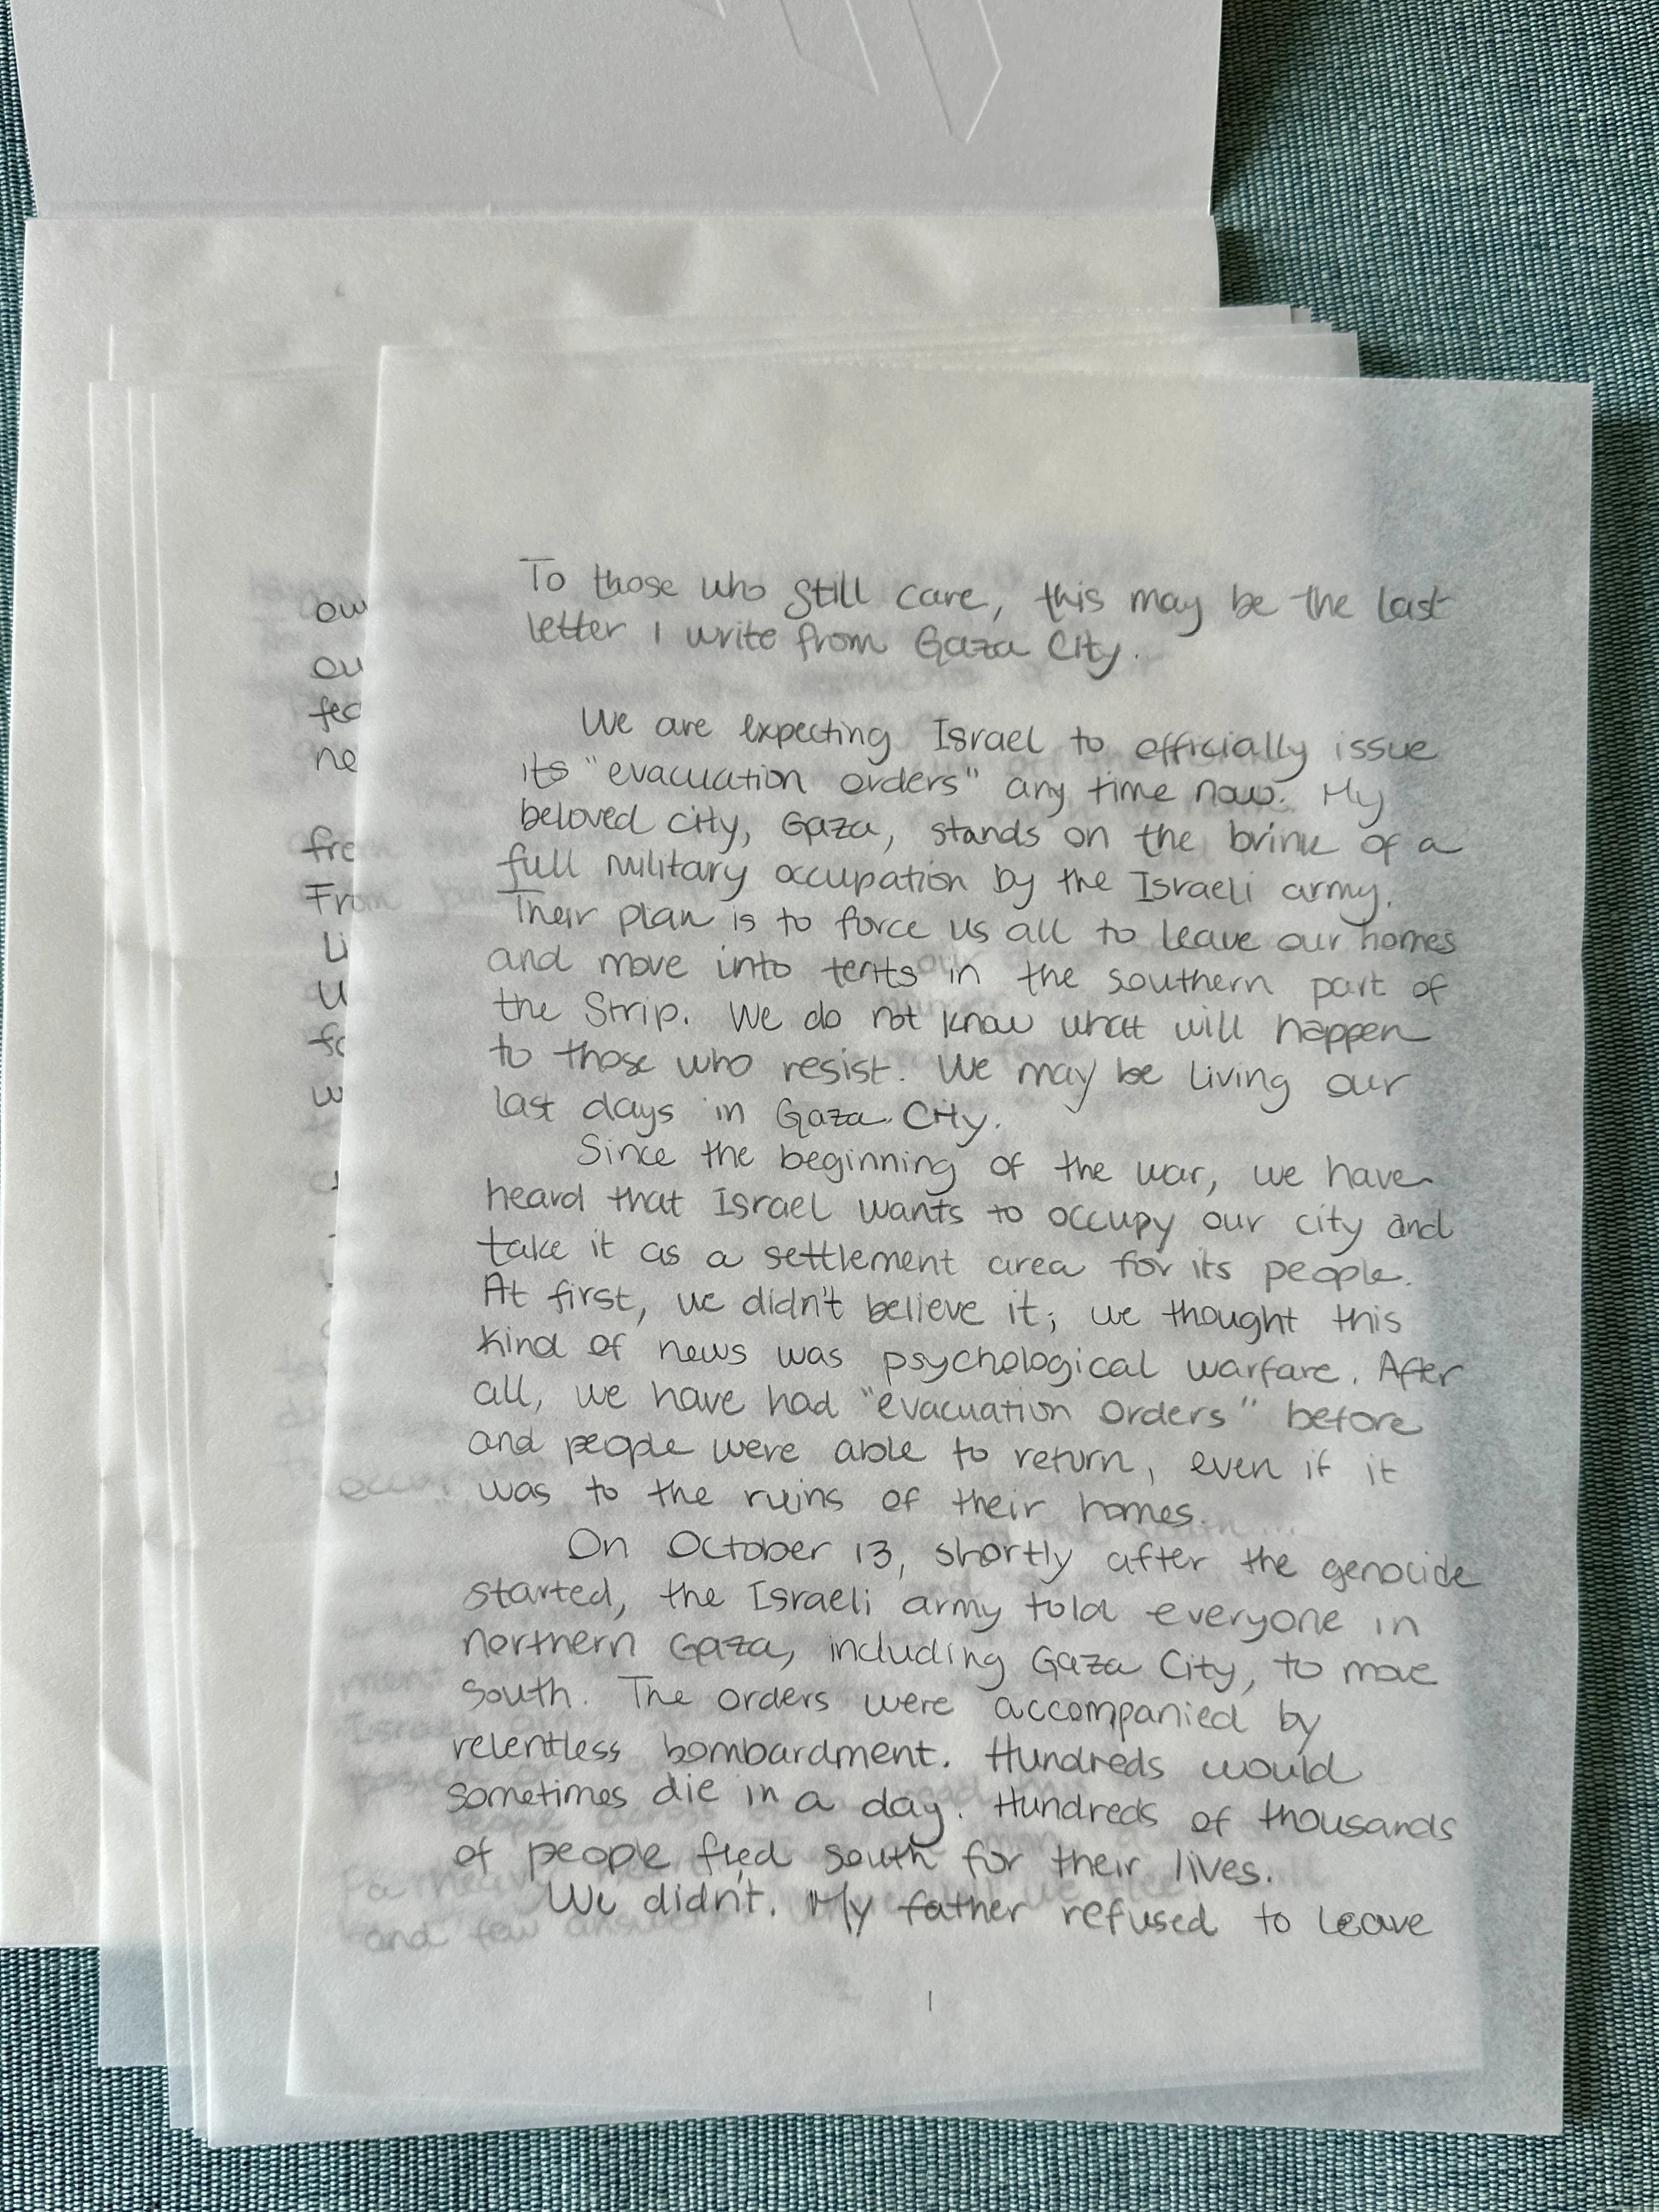 To those who still care, this may be the last
letter I write from Gaza City.
We are expecting Israel to officially issue
its "evacuation orders" any time now. My
beloved city, Gaza, stands on the brink of a
full military occupation by the Israeli army.
Their plan is to force us all to leave our homes
and move into tents in the southern part of
the Strip. We do not know what will happen
to those who resist. We may be living our
last days in Gaza City.
Since the beginning of the war, we have
heard that Israel wants to occupy our city and
take it as a settlement area for its people.
At first, we didn't believe it; we thought this
kind of news was psychological warfare. After
all, we have had "evacuation orders" before
and people were able to return, even if it
was to the ruins of their homes.
On October 13, shortly after the genocide
started, the Israeli army told everyone in
northern Gaza, including Gaza City, to move
south. The orders were accompanied by
relentless bombardment. Hundreds would
sometimes die in a day. Hundreds of thousands
of people fled south for their lives.
We didn't. My father refused to leave
1